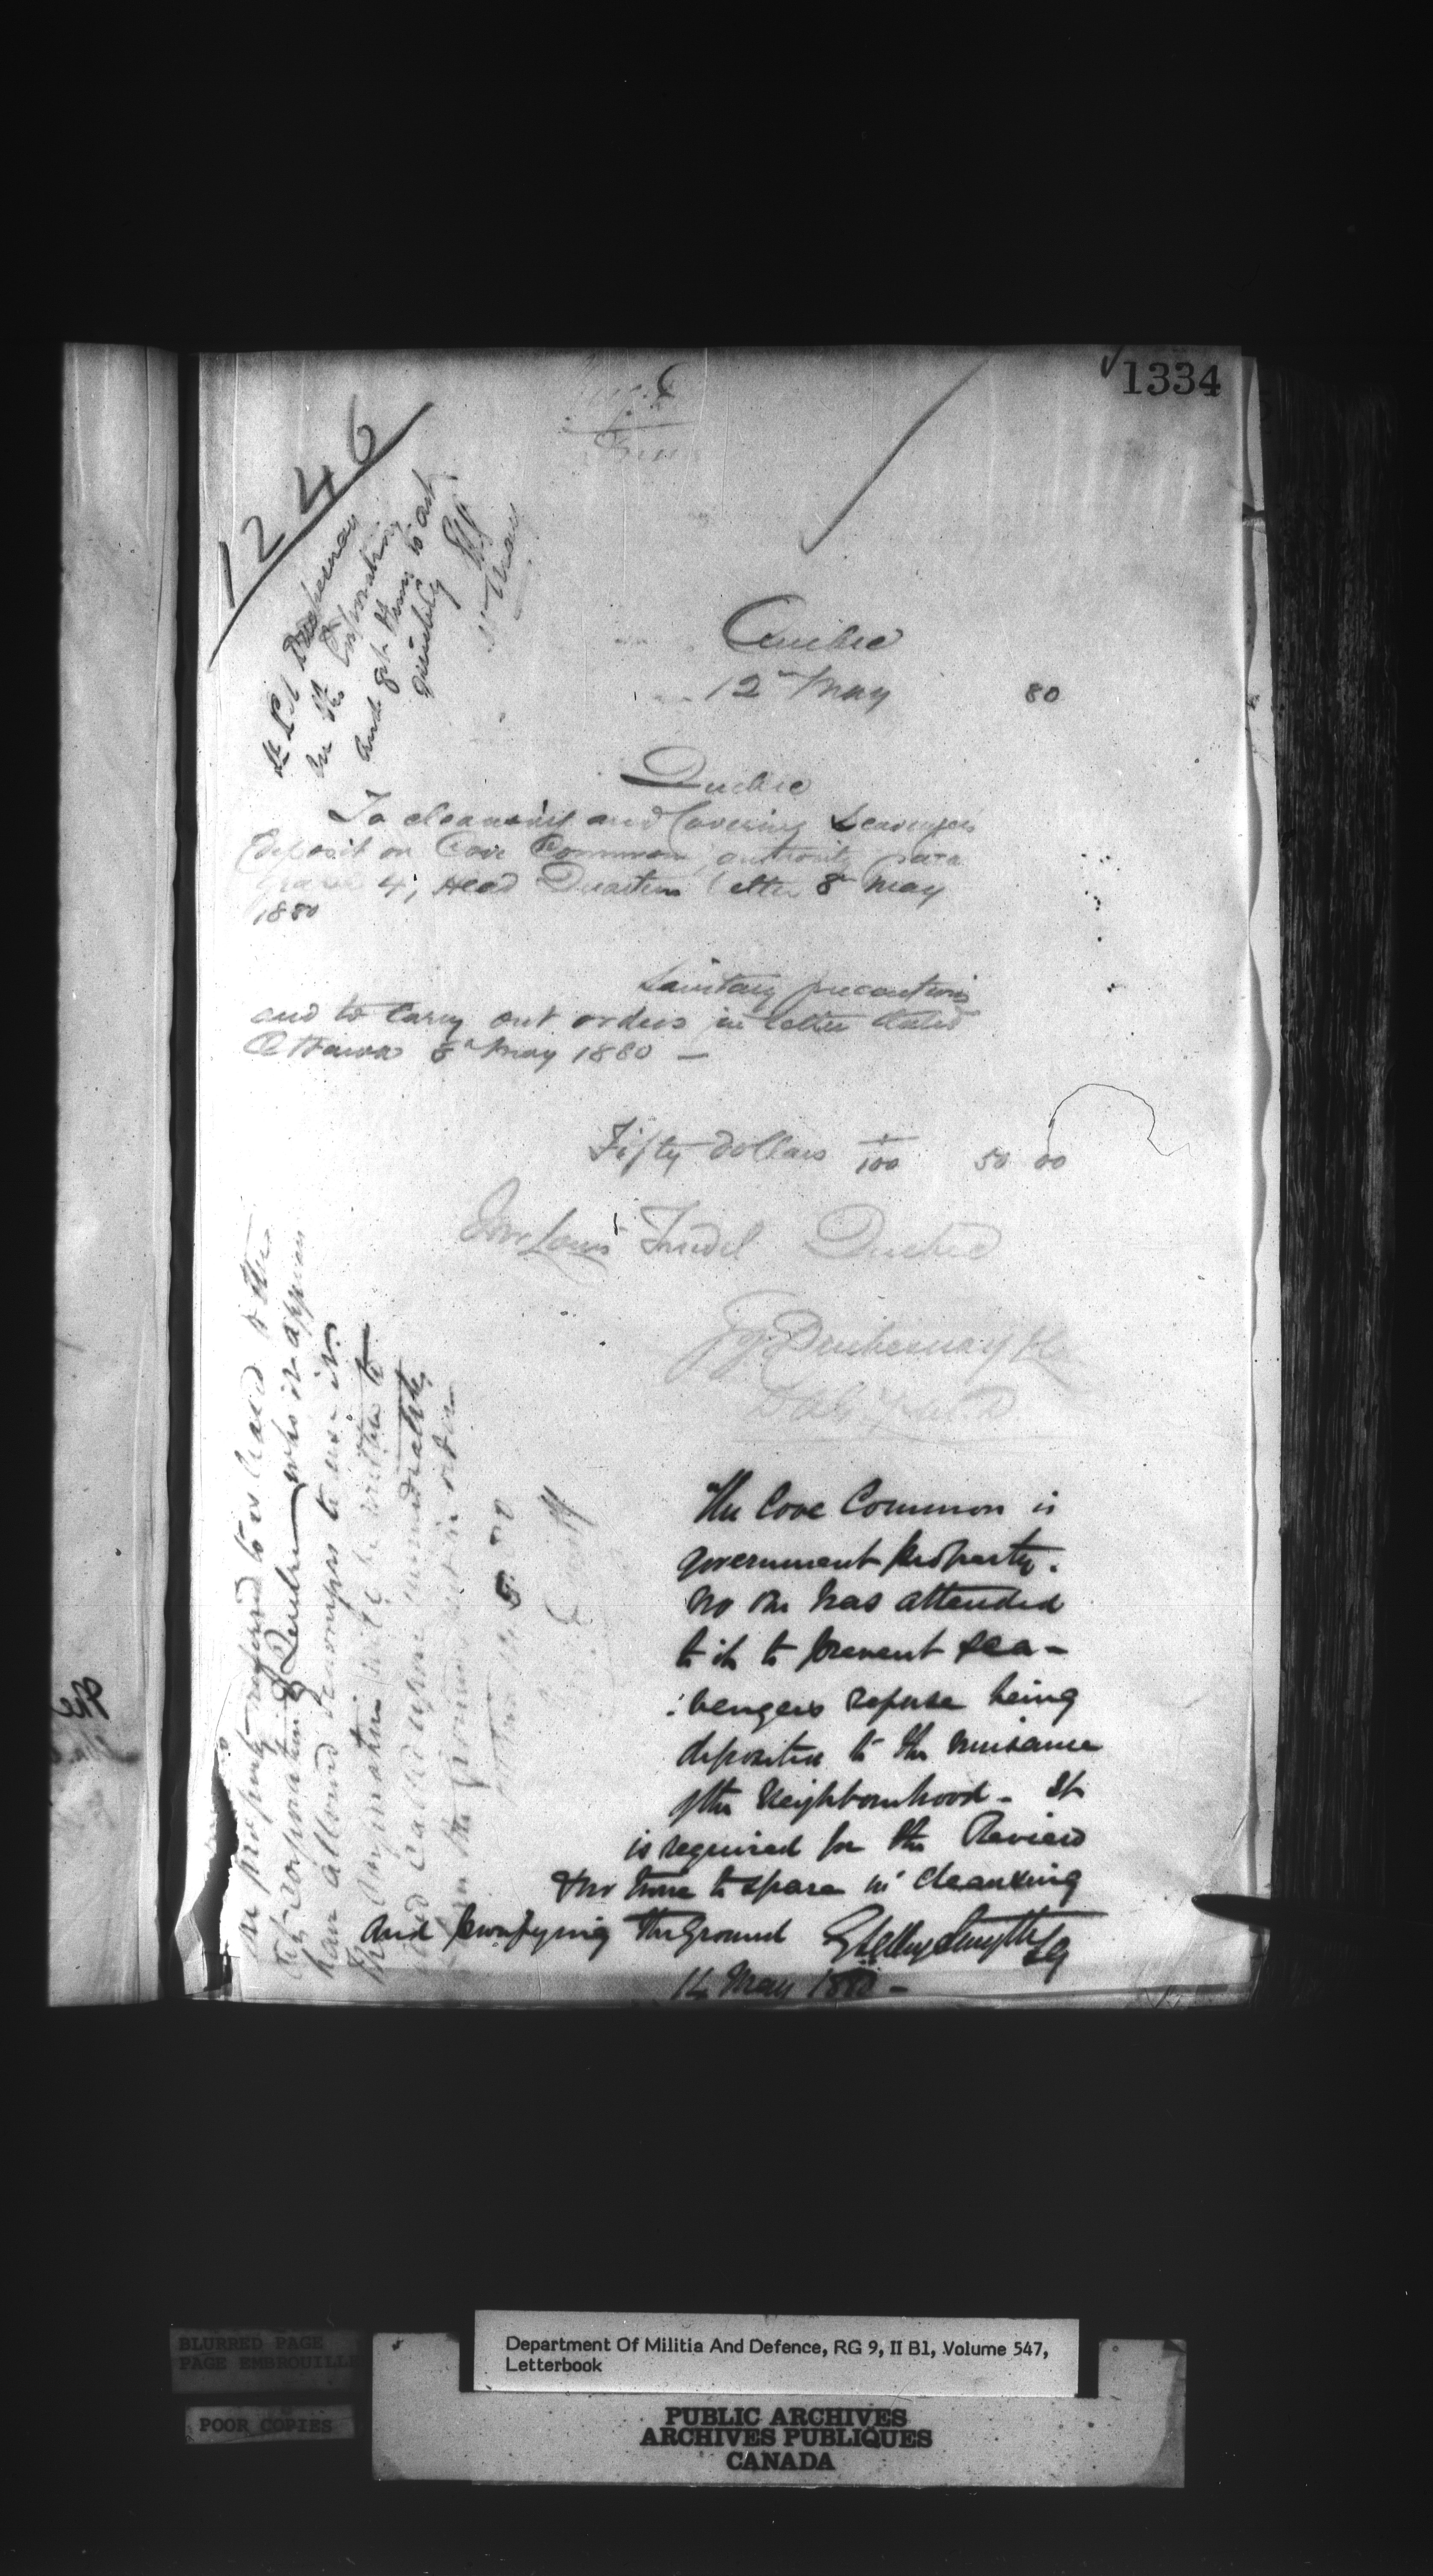 1334
1246
Lt Col Duchesnay
the Corporation
and get them to act
quickly
Quebec
12th May 80
Quebec
To cleansing and Covering Scavengers
deposit on Cove Common, authority para
graph 4, Head Quarters letter 8th May
1880
Sanitary precautions
and to Carry out orders in letter dated
Ottawa 8th May 1880 —
Fifty dollars 100 50 00
Mr Louis Trudel Quebec
Duchesnay
The Cove Common is
government property.
No one has attended
to it to prevent sca-
vengers refuse being
deposited to the nuisance
of the Neighbourhood - It
is required for the Review
& no time to spare in cleansing
and purifying the Ground E Selby Smyth Lg
14 May 1880 -
The property referred to as leased to the
City corporation of Quebec who it appears
have allowed scavengers to use it.
The Corporation will be written to
and called upon immediately
The
Department Of Militia And Defence, RG 9, II B1, Volume 547,
Letterbook
BLURRED PAGE
PAGE EMBROUILLE
POOR COPIES
PUBLIC ARCHIVES
ARCHIVES PUBLIQUES
CANADA